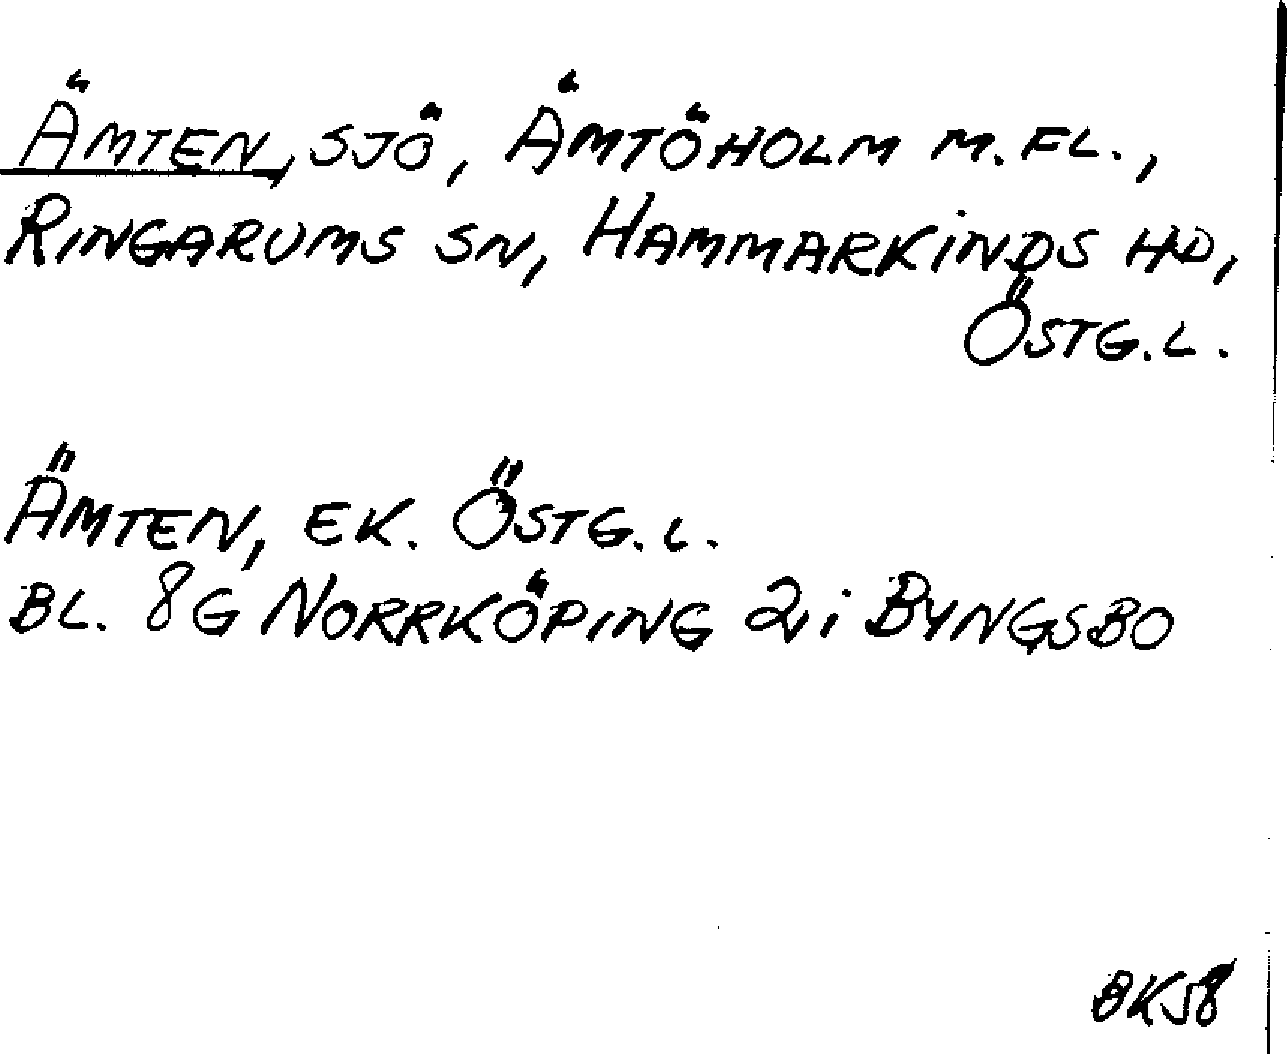 ÄMTEN, SJÖ, ÄMTÖHOLM M.FL.,
RINGARUMS SN, HAMMARKINDS HD,
ÖSTG.L.
ÄMTEN, EK. ÖSTG.L.
BL. 8G NORRKÖPING 2i BYNGSBO
BK58